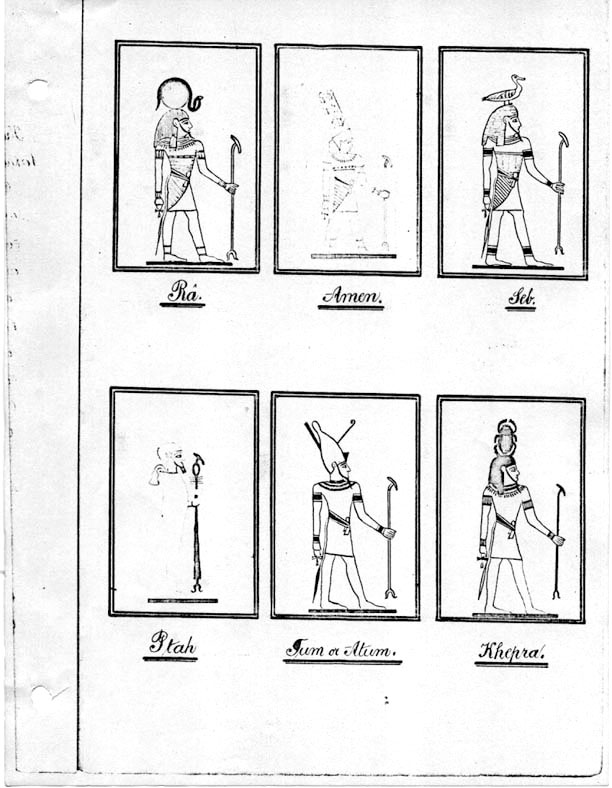 Râ.
Amen.
Seb.
Ptah
Tum or Atum.
Khepra.